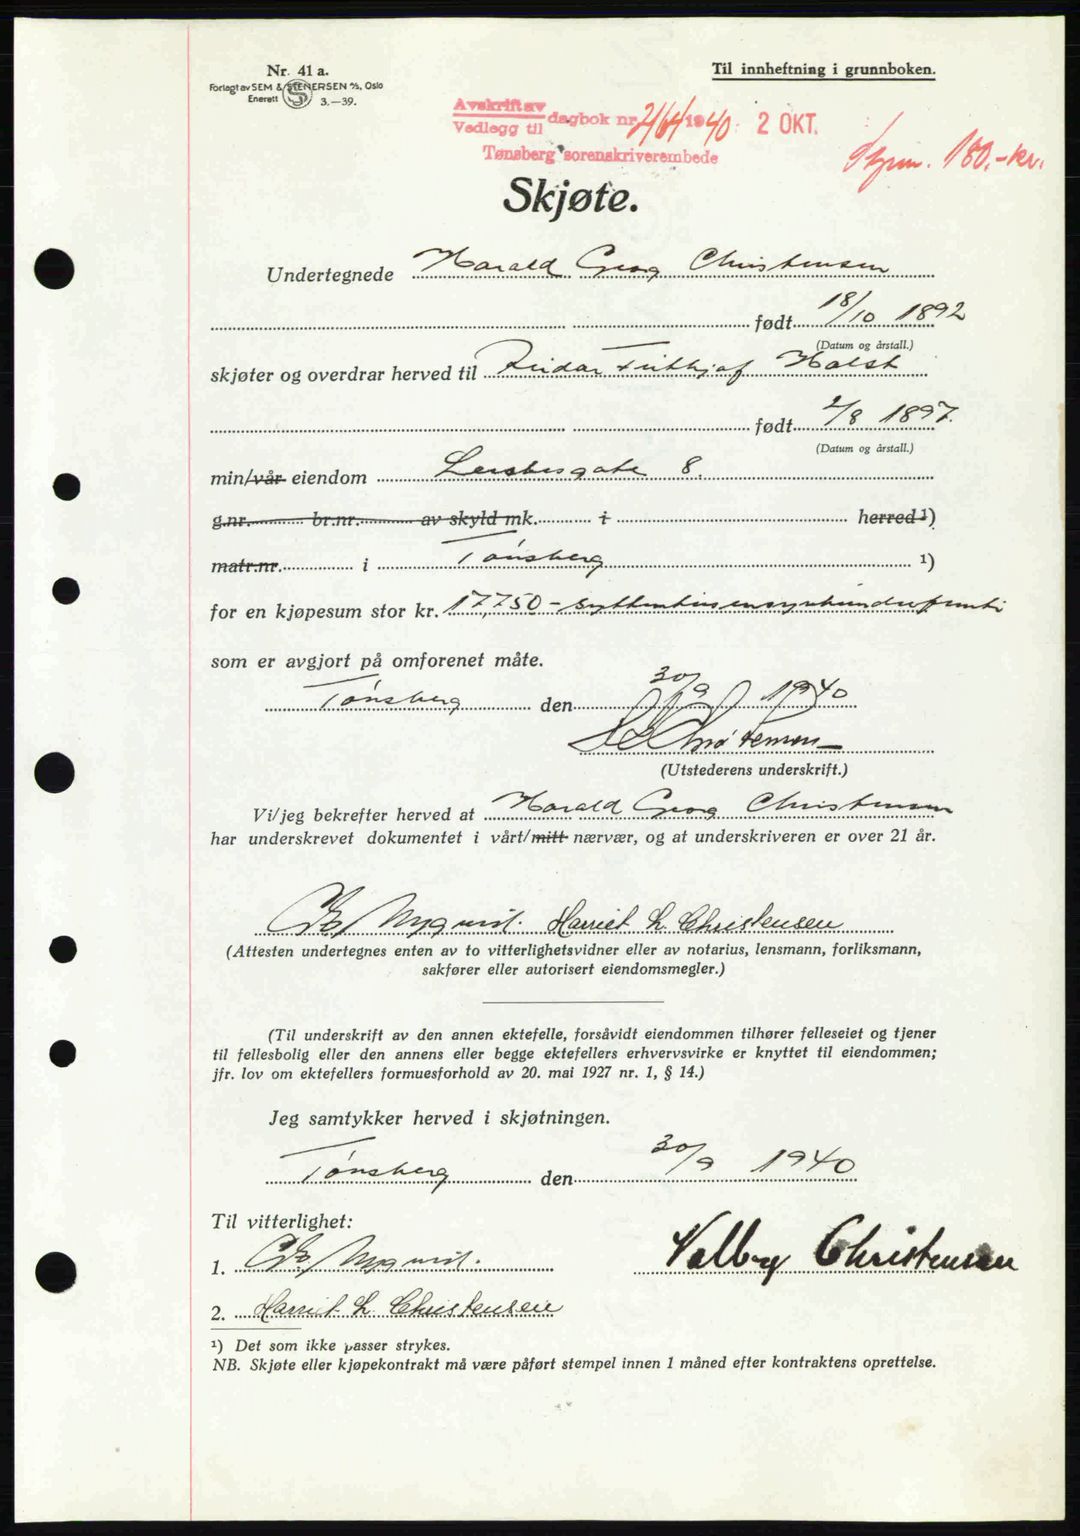 Nr. 41 a.
Forlagt av SEM & STENERSEN A/S, Oslo
Enerett 3.—39.
Til innheftning i grunnboken.
Avskrift av
Vedlegg til dagbok nr. 2164 1940 2 OKT.
Tønsberg sorenskriverembede
180.-kr.
Skjøte.
Undertegnede Harald Georg Christensen
født 18/10 1892
(Datum og årstall.)
skjøter og overdrar herved til Reidar Frithjof Holst
født 2/8 1897.
(Datum og årstall.)
min/vår eiendom 8.
g.nr. br.nr. av skyld mk. i herred ¹)
matr.nr. i Tønsberg ¹)
for en kjøpesum stor kr. 17,750 - syttentusensyvhundrefemti
som er avgjort på omforenet måte.
Tønsberg den 30/9 1940
Christensen
(Utstederens underskrift.)
Vi/jeg bekrefter herved at Harald Georg Christensen
har underskrevet dokumentet i vårt/mitt nærvær, og at underskriveren er over 21 år.
Nyqvist. Harriet L. Christensen
(Attesten undertegnes enten av to vitterlighetsvidner eller av notarius, lensmann, forliksmann,
sakfører eller autorisert eiendomsmegler.)
(Til underskrift av den annen ektefelle, forsåvidt eiendommen tilhører felleseiet og tjener
til fellesbolig eller den annens eller begge ektefellers erhvervsvirke er knyttet til eiendommen;
jfr. lov om ektefellers formuesforhold av 20. mai 1927 nr. 1, § 14.)
Jeg samtykker herved i skjøtningen.
Tønsberg den 30/9 1940
Til vitterlighet:
1. Nyqvist. Valborg Christensen
2. Harriet L. Christensen
¹) Det som ikke passer strykes.
NB. Skjøte eller kjøpekontrakt må være påført stempel innen 1 måned efter kontraktens oprettelse.